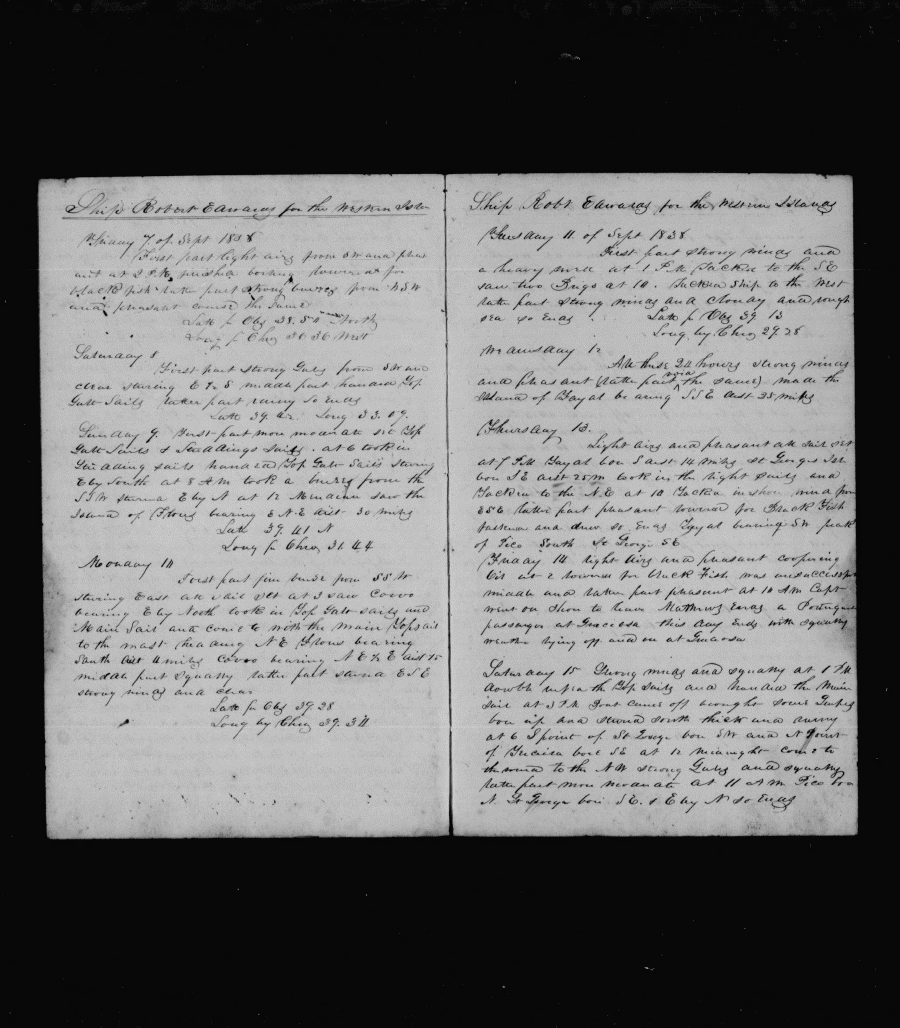 Ship Robert Edwards for the Western Isla
Friday 7 of Sept 1838
First part light airs from SW and pleas
ant at 2 P.M. finished boiling lowered for
black fish latter part strong breezes from WSW
and pleasant course the same
Latt p Obs 38.50 North
Long p Chro 36 36 West
Saturday 8
First part strong Gales from SW and
clear staring E ½ S middle part handed Top
Gallt Sails latter part rainy So ends
Latt 39. Long 33.09.
Sunday 9. First part more moderate set Top
Gallt Sails & Studdings Sails. at 6 took in
Studding sails handed Top Gallt Sails staring
E by South at 8 AM took a breeze from the
SSW steared E by N at 12 Meridian saw the
Island of Flores bearing E N E dist 30 miles
Latt 39.41 N
Long p Chro 31.44
Monday 10
First part fine breese from SSW
staring East all sail set at 3 saw Corvo
bearing E by North took in Top Gallt Sails and
Main Sail and come to with the main Topsail
to the mast heading N E Flores bearing
South dist 4 miles Corvo bearing N E ½ E dist 15
middle part squally latter part steared E S E
strong winds and clear
Latt p Obs 39.28
Long by Chro 39.30
Ship Robt Edwards for the Western Islands
Tuesday 11 of Sept 1838
First part strong winds and
a heavy swell at 1 P.M. Tacked to the SE
saw two Brigs at 10. Tacked Ship to the West
latter part strong winds and cloudy and rough
sea so ends. Latt p Obs 39 13
Long by Chro 29.28
Wednsday 12
All these 24 hours strong winds
and pleasant (latter part wind the same) made the
Island of Fayal bearing SSE dist 25 miles
Thursday 13.
Light airs and pleasant all sail set
at 7 P.M Fayal bore S dist 14 miles St Gorges Isle
bore SE dist 25 m took in the light sails and
Tacked to the N.E at 10 Tacked in shore wind from
ESE latter part pleasant lowered for Black Fish
fastened and drew so Ends Fayal bearing SW peak
of Pico South St George SE
Friday 14 light airs and pleasant coopering
Oil at 2 lowered for black Fish was unsuccessful
middle and latter part pleasant at 10 AM Capt
went on shore to leave Mathews Enas a Portuguese
passenger at Graciosa this day Ends with squally
weather lying off and on at Graciosa
Saturday 15 Strong winds and squally at 1 P.M
double reef in the Top sails and handed the Main
sail at 3 P.M Boat came off brought some Grapes
bore up and steared south thick and rainy
at 6 S point of St George bore SW and N Point
of Graciosa bore SE at 12 midnight come to
the wind to the NW strong Gales and squally
latter part more moderate at 11 A.M. Pico bore
N. St George bore SE. & E by N so Ends